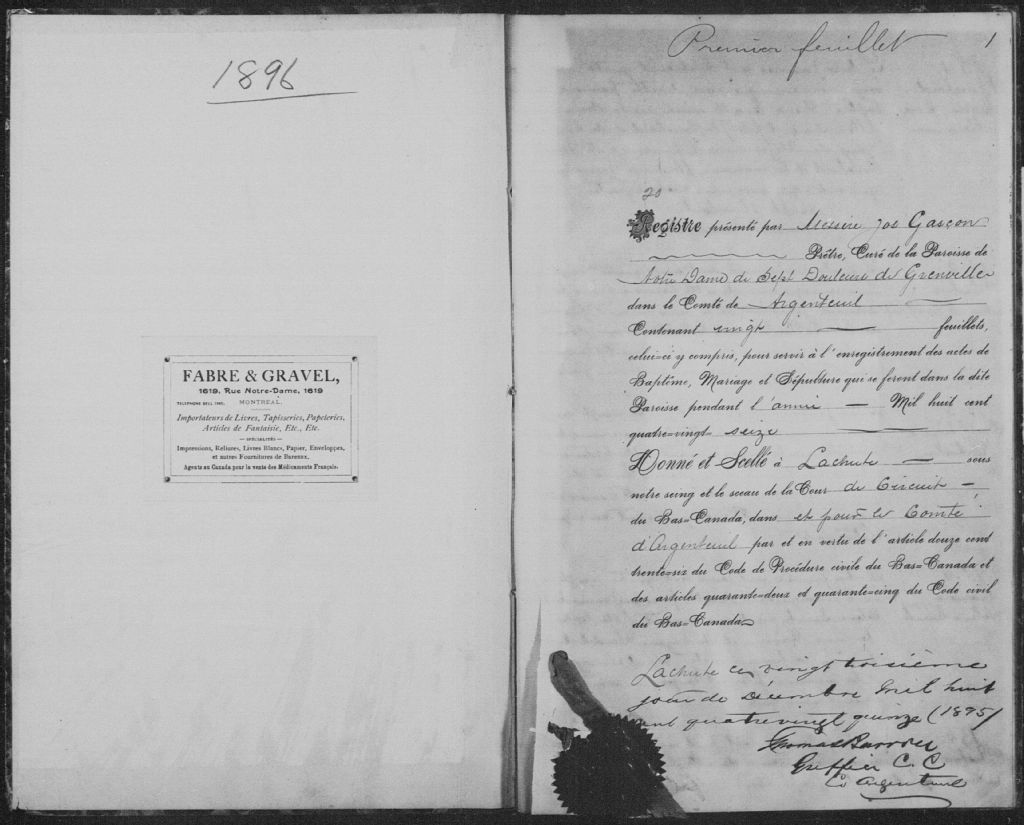 1896
FABRE & GRAVEL,
1619, Rue Notre-Dame, 1619
TELEPHONE BELL MONTREAL.
Importateurs de Livres, Tapisseries, Papeteries,
Articles de Fantaisie, Etc., Etc.
— SPÉCIALITÉS —
Impressions, Reliures, Livres Blancs, Papier, Enveloppes,
et autres Fournitures de Bureaux.
Agents au Canada pour la vente des Médicaments Français.
Premier feuillet 1
20
Registre présenté par Messire Jos Gascon
Prêtre, Curé de la Paroisse de
Notre Dame de Sept Douleurs de Grenville
dans le Comté de Argenteuil
Contenant vingt feuillets,
celui=ci y compris, pour servir à l'enregistrement des actes de
Baptême, Mariage et Sépulture qui se feront dans la dite
Paroisse pendant l'année — Mil huit cent
quatre=vingt seize
Donné et Scellé à Lachute — sous
notre seing et le sceau de la Cour de Circuit —
du Bas=Canada, dans et pour le Comté
d'Argenteuil par et en vertu de l'article douze cent
trente=six du Code de Procédure civile du Bas=Canada et
des articles quarante=deux et quarante=cinq du Code civil
du Bas=Canada
Lachute ce vingt troisième
jour de Décembre Mil huit
cent quatre vingt quinze (1895)
Thomas Barron
Greffier C. C
Co Argenteuil